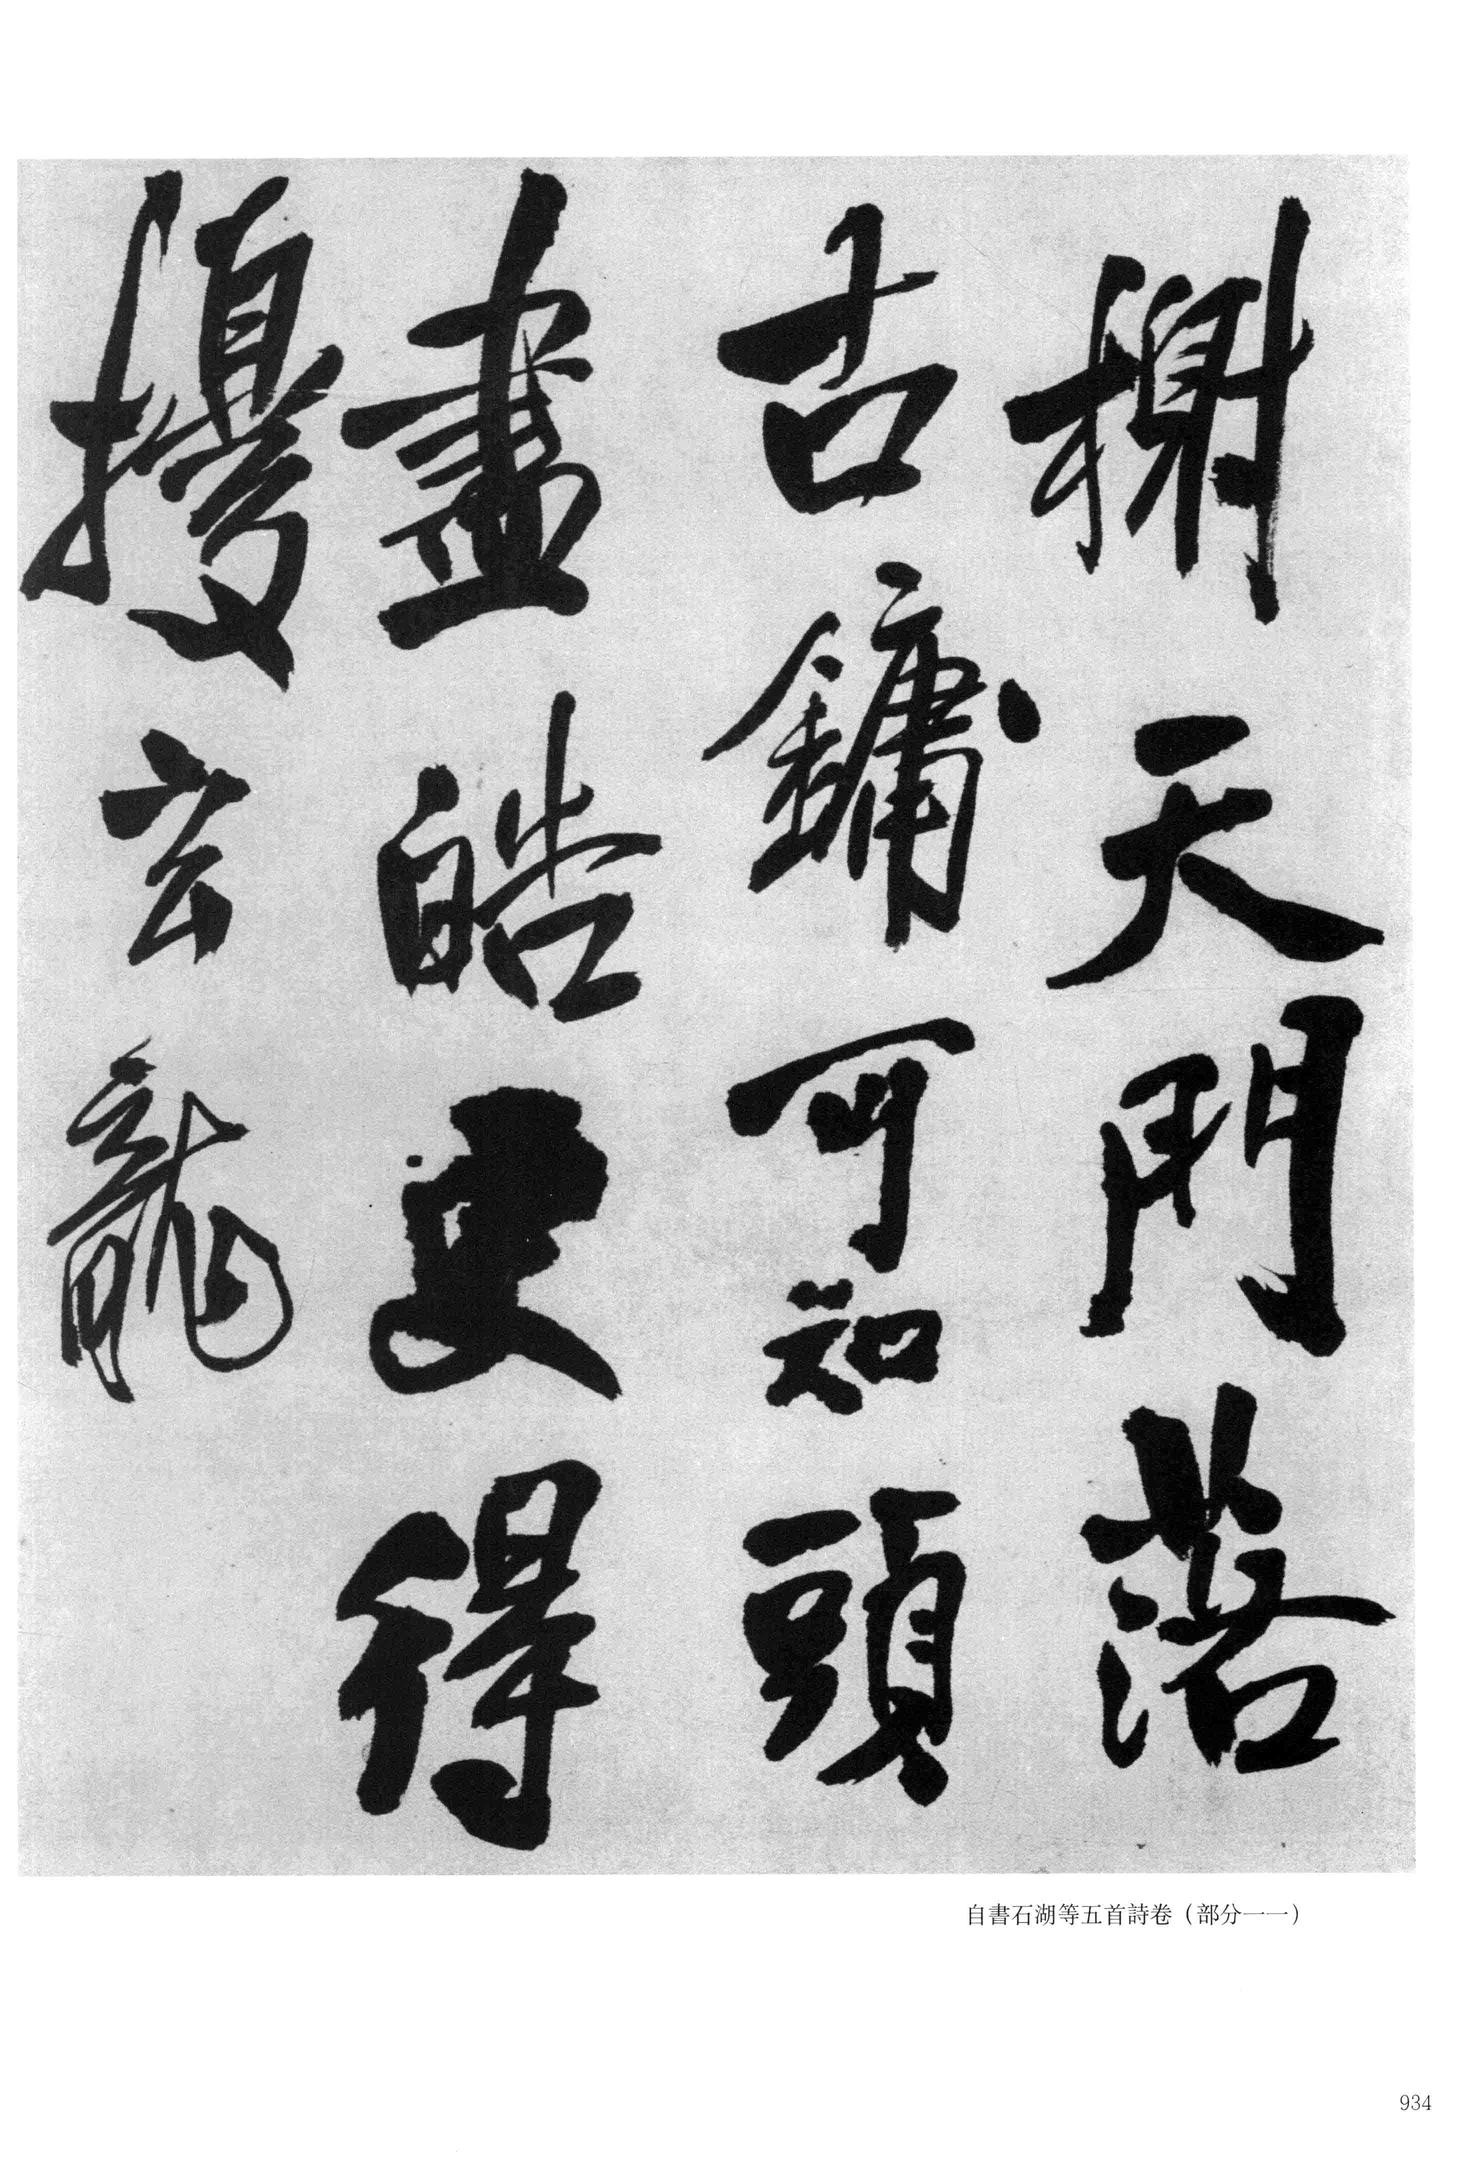 榭天門落
古鏞可知頭
盡皓更得
擾玄龍
自書石湖等五首詩卷（部分一一）
934